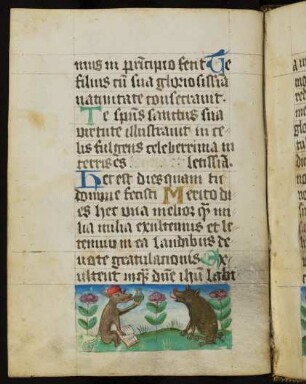 mus in principio fecit Te
filius cū sua gloriosissīa
natiuitate consecrauit.
Te spūs sanctus sua
virtute illustrauit in ce
lis fulgens celeberrima in
terris es letissīa.
Hec est dies quam tu
domine fecisti Merito di
es hec vna melior qᷓ mi
lia milia exultemus et le
temur in ea laudibus de
uote gratulationis Ex
ultent inqͣ dn̄e